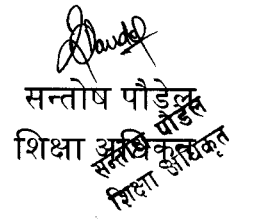 सन्तोष पौडेल
शिक्षा अधिकृत
सन्तोष पौडेल
शिक्षा अधिकृत